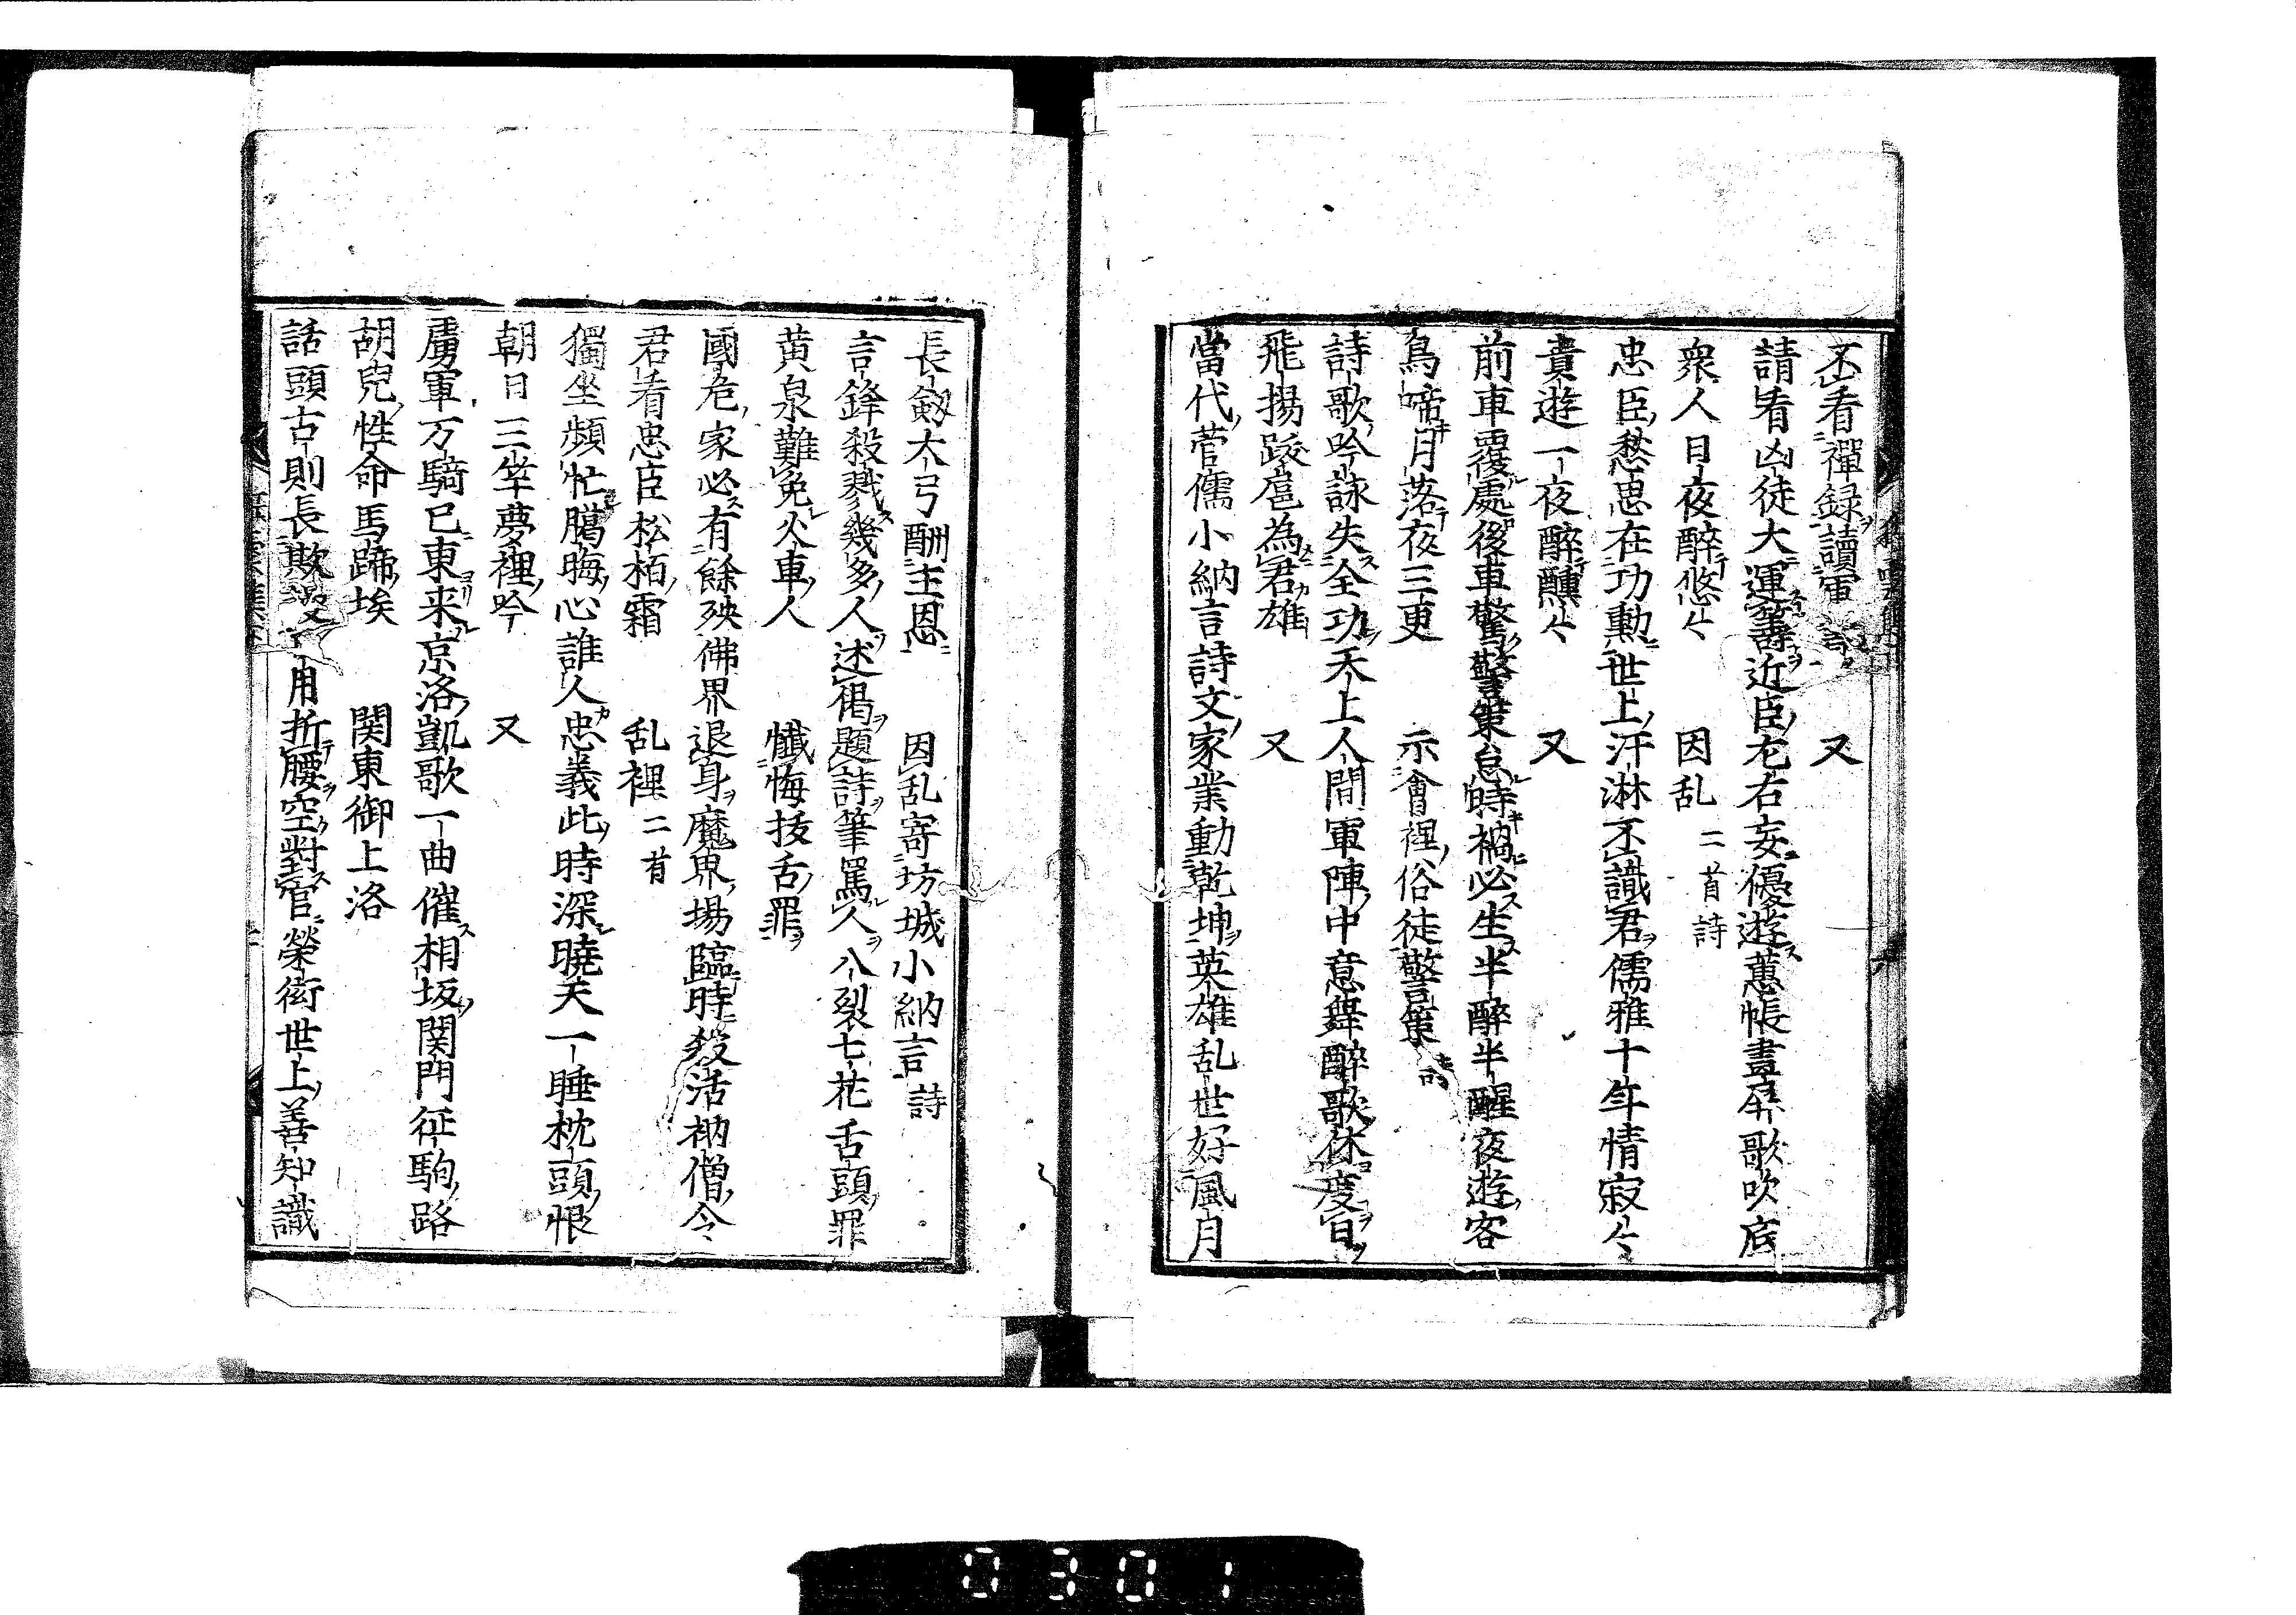 不看禪録讀軍書　又
請看凶徒大運籌近臣左右妄優遊蕙帳畫屏歌吹底
衆人日夜醉悠々　因乱二首詩
忠臣愁思在功勲世上汗淋不識君儒雅十年情寂々
貴遊一夜醉醺々　又
前車覆處後車驚警策怠時禍必生半醉半醒夜遊客
烏啼月落夜三更　示會裡俗徒警策
詩歌吟詠失全功天上人間軍陣中意舞醉歌休度日
飛揚跋扈為君雄　又
當代菅儒小納言詩文家業動乾坤英雄乱世好風月
長劔大弓酬主恩　因乱寄坊城小納言詩
言鋒殺戮幾多人述偈題詩筆罵人八裂七花舌頭罪
黄泉難免火車人　懺悔拔舌罪
國危家必有餘殃佛界退身魔界場臨時殺活衲僧令
君看忠臣松栢霜　乱裡二首
獨坐頻忙臈晦心誰人忠義此時深曉天一睡枕頭恨
朝日三竿夢裡吟　又
虜軍万騎已東来京洛凱歌一曲催相坂関門征駒路
胡兒性命馬蹄埃　関東御上洛
話頭古則長欺用折腰空對官榮衒世上善知識
0301